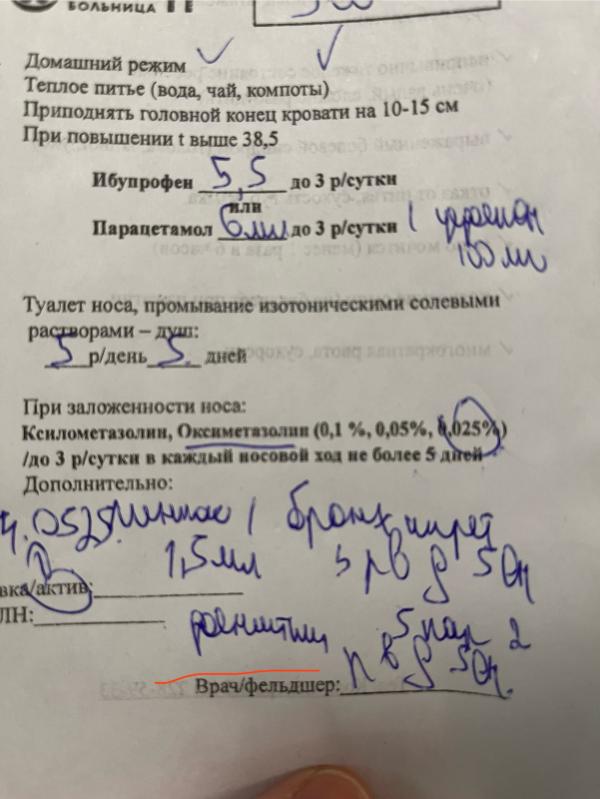 БОЛЬНИЦА
Домашний режим
Теплое питье (вода, чай, компоты)
Приподнять головной конец кровати на 10-15 см
При повышении t выше 38,5
Ибупрофен 5,5 до 3 р/сутки
или
Парацетамол 6мл до 3 р/сутки /
100 мл
Туалет носа, промывание изотоническими солевыми
растворами – душ:
5 р/день 5 дней
При заложенности носа:
Ксилометазолин, Оксиметазолин (0,1 %, 0,05%, 0,025%)
/до 3 р/сутки в каждый носовой ход не более 5 дней
Дополнительно:
бронхипрет
1,5мл 3 р в д 5дн
вка/актив:
ЛН:
фенистил 5 кап 2
р в д 5дн.
Врач/фельдшер: